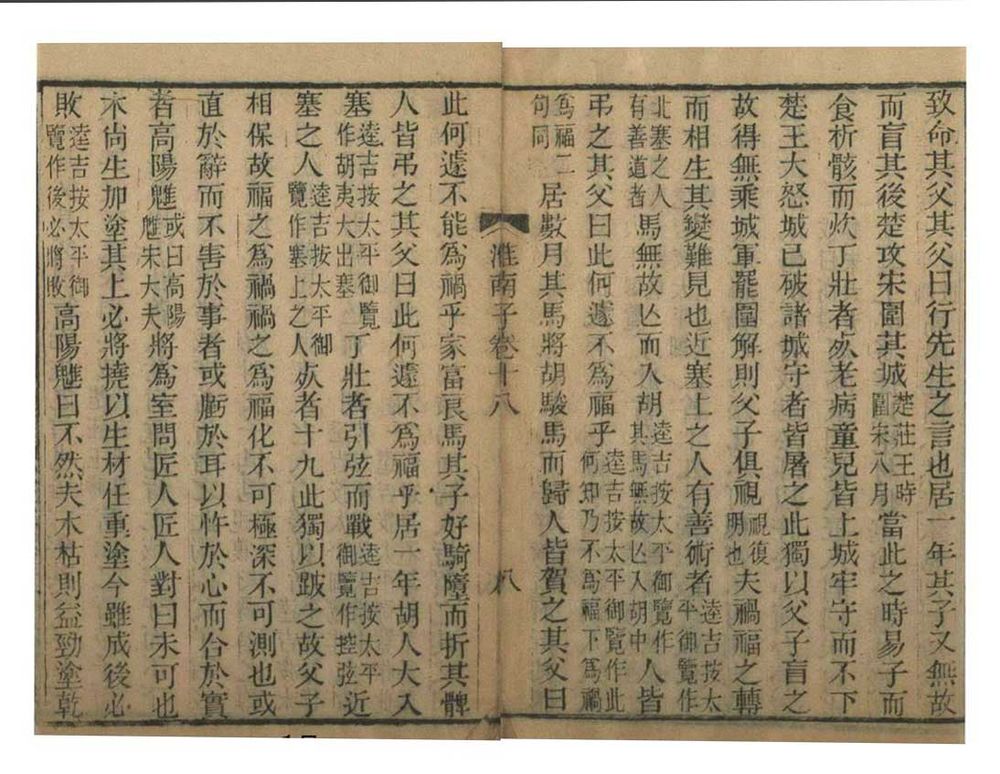 致命其父其父曰行先生之言也居一年其子又無故
而盲其後楚攻宋圍其城楚莊王時圍宋八月當此之時易子而
食析骸而炊丁壯者𣦸老病童兒皆上城牢守而不下
楚王大怒城已破諸城守者皆屠之此獨以父子盲之
故得無乘城軍罷圍解則父子俱視視復明也夫禍福之轉
而相生其變難見也近塞上之人有善術者逵吉按太平御覽作
北塞之人有善道者馬無故亾而入胡逵吉按太平御覽作其馬無故亾入胡中人皆
弔之其父曰此何遽不爲福乎逵吉按太平御覽作此何知乃不爲福下爲禍
爲福二句同居數月其馬將胡駿馬而歸人皆賀之其父曰
淮南子卷十八 八
此何遽不能爲禍乎家富良馬其子好騎墮而折其髀
人皆弔之其父曰此何遽不爲福乎居一年胡人大入
塞逵吉按太平御覽作胡夷大出塞丁壯者引弦而戰逵吉按太平御覽作控弦近
塞之人逵吉按太平御覽作塞上之人𣦸者十九此獨以跛之故父子
相保故福之爲禍禍之爲福化不可極深不可測也或
直於辭而不害於事者或虧於耳以忤於心而合於實
者高陽魋或曰高陽魋宋大夫將爲室問匠人匠人對曰未可也
木尚生加塗其上必將撓以生材任重塗今雖成後必
敗逵吉按太平御覽作後必將敗高陽魋曰不然夫木枯則益勁塗乾